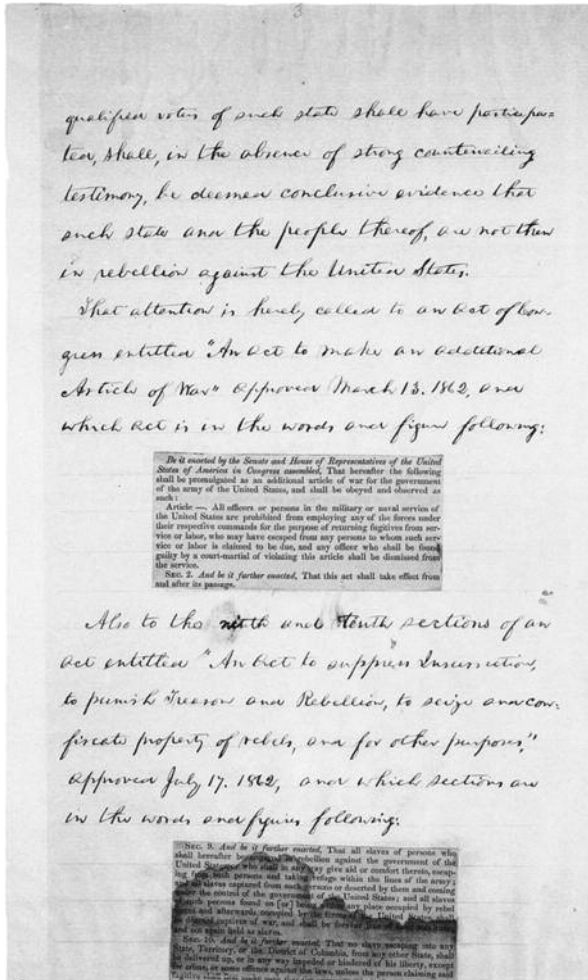 3
qualified voters of such state shall have participa=
ted, shall, in the absence of strong countervailing
testimony, be deemed conclusive evidence that
such state and the people thereof, are not then
in rebellion against the United States.
That attention is hereby called to an act of Con-
gress entitled "An act to make an additional
Article of War" approved March 13. 1862, and
which act is in the words and figure following:
Be it enacted by the Senate and House of Representatives of the United
States of America in Congress assembled, That hereafter the following
shall be promulgated as an additional article of war for the government
of the army of the United States, and shall be obeyed and observed as
such:
Article —. All officers or persons in the military or naval service of
the United States are prohibited from employing any of the forces under
their respective commands for the purpose of returning fugitives from ser-
vice or labor, who may have escaped from any persons to whom such ser-
vice or labor is claimed to be due, and any officer who shall be found
guilty by a court-martial of violating this article shall be dismissed from
the service.
SEC. 2. And be it further enacted, That this act shall take effect from
and after its passage.
Also to the ninth and tenth sections of an
act entitled "An Act to suppress Insurrection,
to punish Treason and Rebellion, to seize and con=
fiscate property of rebels, and for other purposes,"
approved July 17. 1862, and which sections are
in the words and figures following:
SEC. 9. And be it further enacted, That all slaves of persons who
shall hereafter be engaged in rebellion against the government of the
United States, or who shall in any way give aid or comfort thereto, escap-
ing from such persons and taking refuge within the lines of the army;
and all slaves captured from such persons or deserted by them and coming
under the control of the government of the United States; and all slaves
of such persons found on [or] being within any place occupied by rebel
forces and afterwards occupied by the forces of the United States, shall
be deemed captives of war, and shall be forever free of their servitude
and not again held as slaves.
SEC. 10. And be it further enacted, That no slave escaping into any
State, Territory, or the District of Columbia, from any other State, shall
be delivered up, or in any way impeded or hindered of his liberty, except
for crime, or some offence against the laws, unless the person claiming said